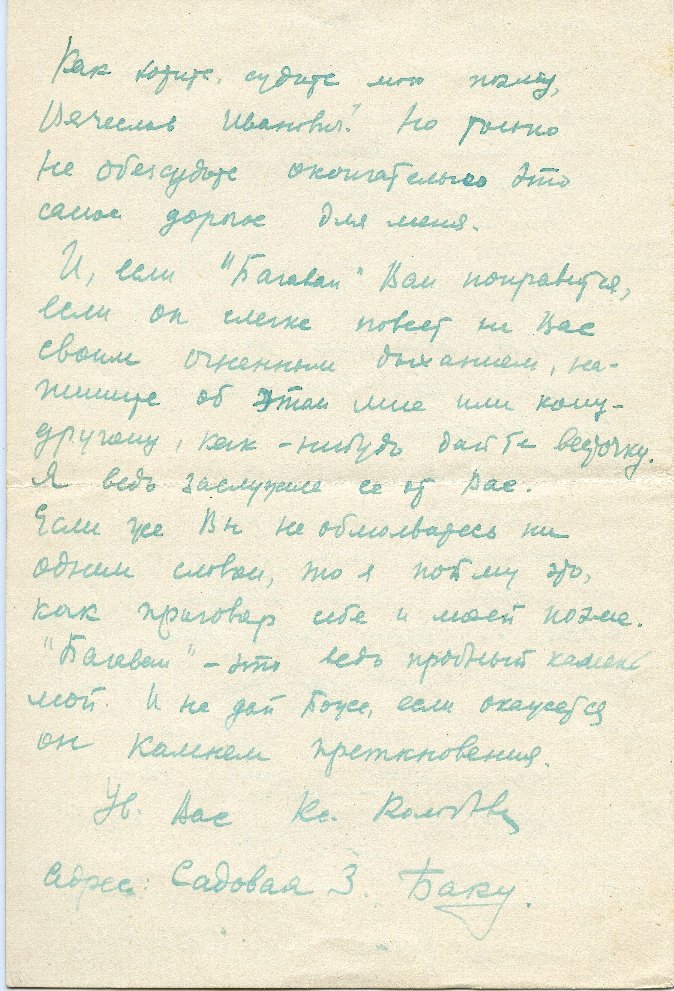 Как хотите, судите мою поэму,
Вячеслав Иванович! Но только
не обезсудьте окончательно это
самое дорогое для меня.
И, если "Багаван" Вам понравится,
если он слегка повеет на Вас
своим огненным дыханием, на-
пишите об этом мне или кому-
другому, как-нибудь дайте весточку.
Я ведь заслужила ее от Вас.
Если же Вы не обмолвитесь ни
одним словом, то я пойму это,
как приговор себе и моей поэме.
"Багаван" – это ведь пробный камень
мой. И не дай Боже, если окажется
он камнем преткновения.
Ув. Вас Кс.
Адрес: Садовая 3. Баку.